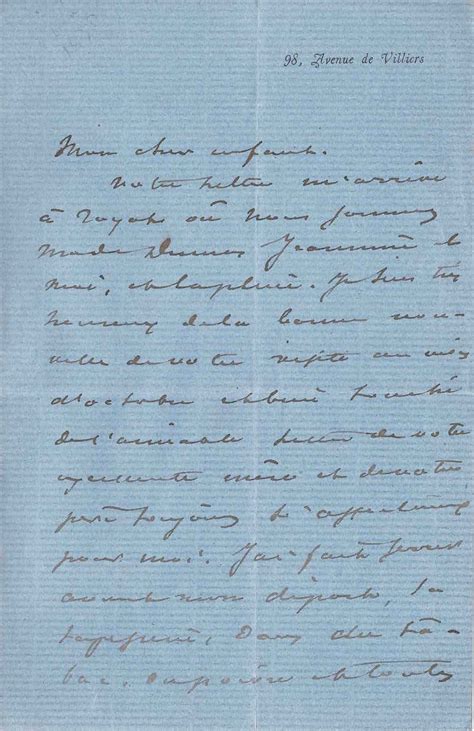 98, Avenue de Villiers
Mon cher enfant.
Votre lettre m'arrive
à Royat où nous sommes
Made Dumas Jeannine et
moi, et la pluie. Je suis très
heureux de la bonne nou-
velle de votre visite au mois
d'octobre et bien touché
de l'aimable lettre de votre
excellente mère et de votre
père toujours si affectueux
pour moi. J'ai fait serrer
avant mon départ, la
tapisserie, dans du ta-
bac, du poivre et toutes